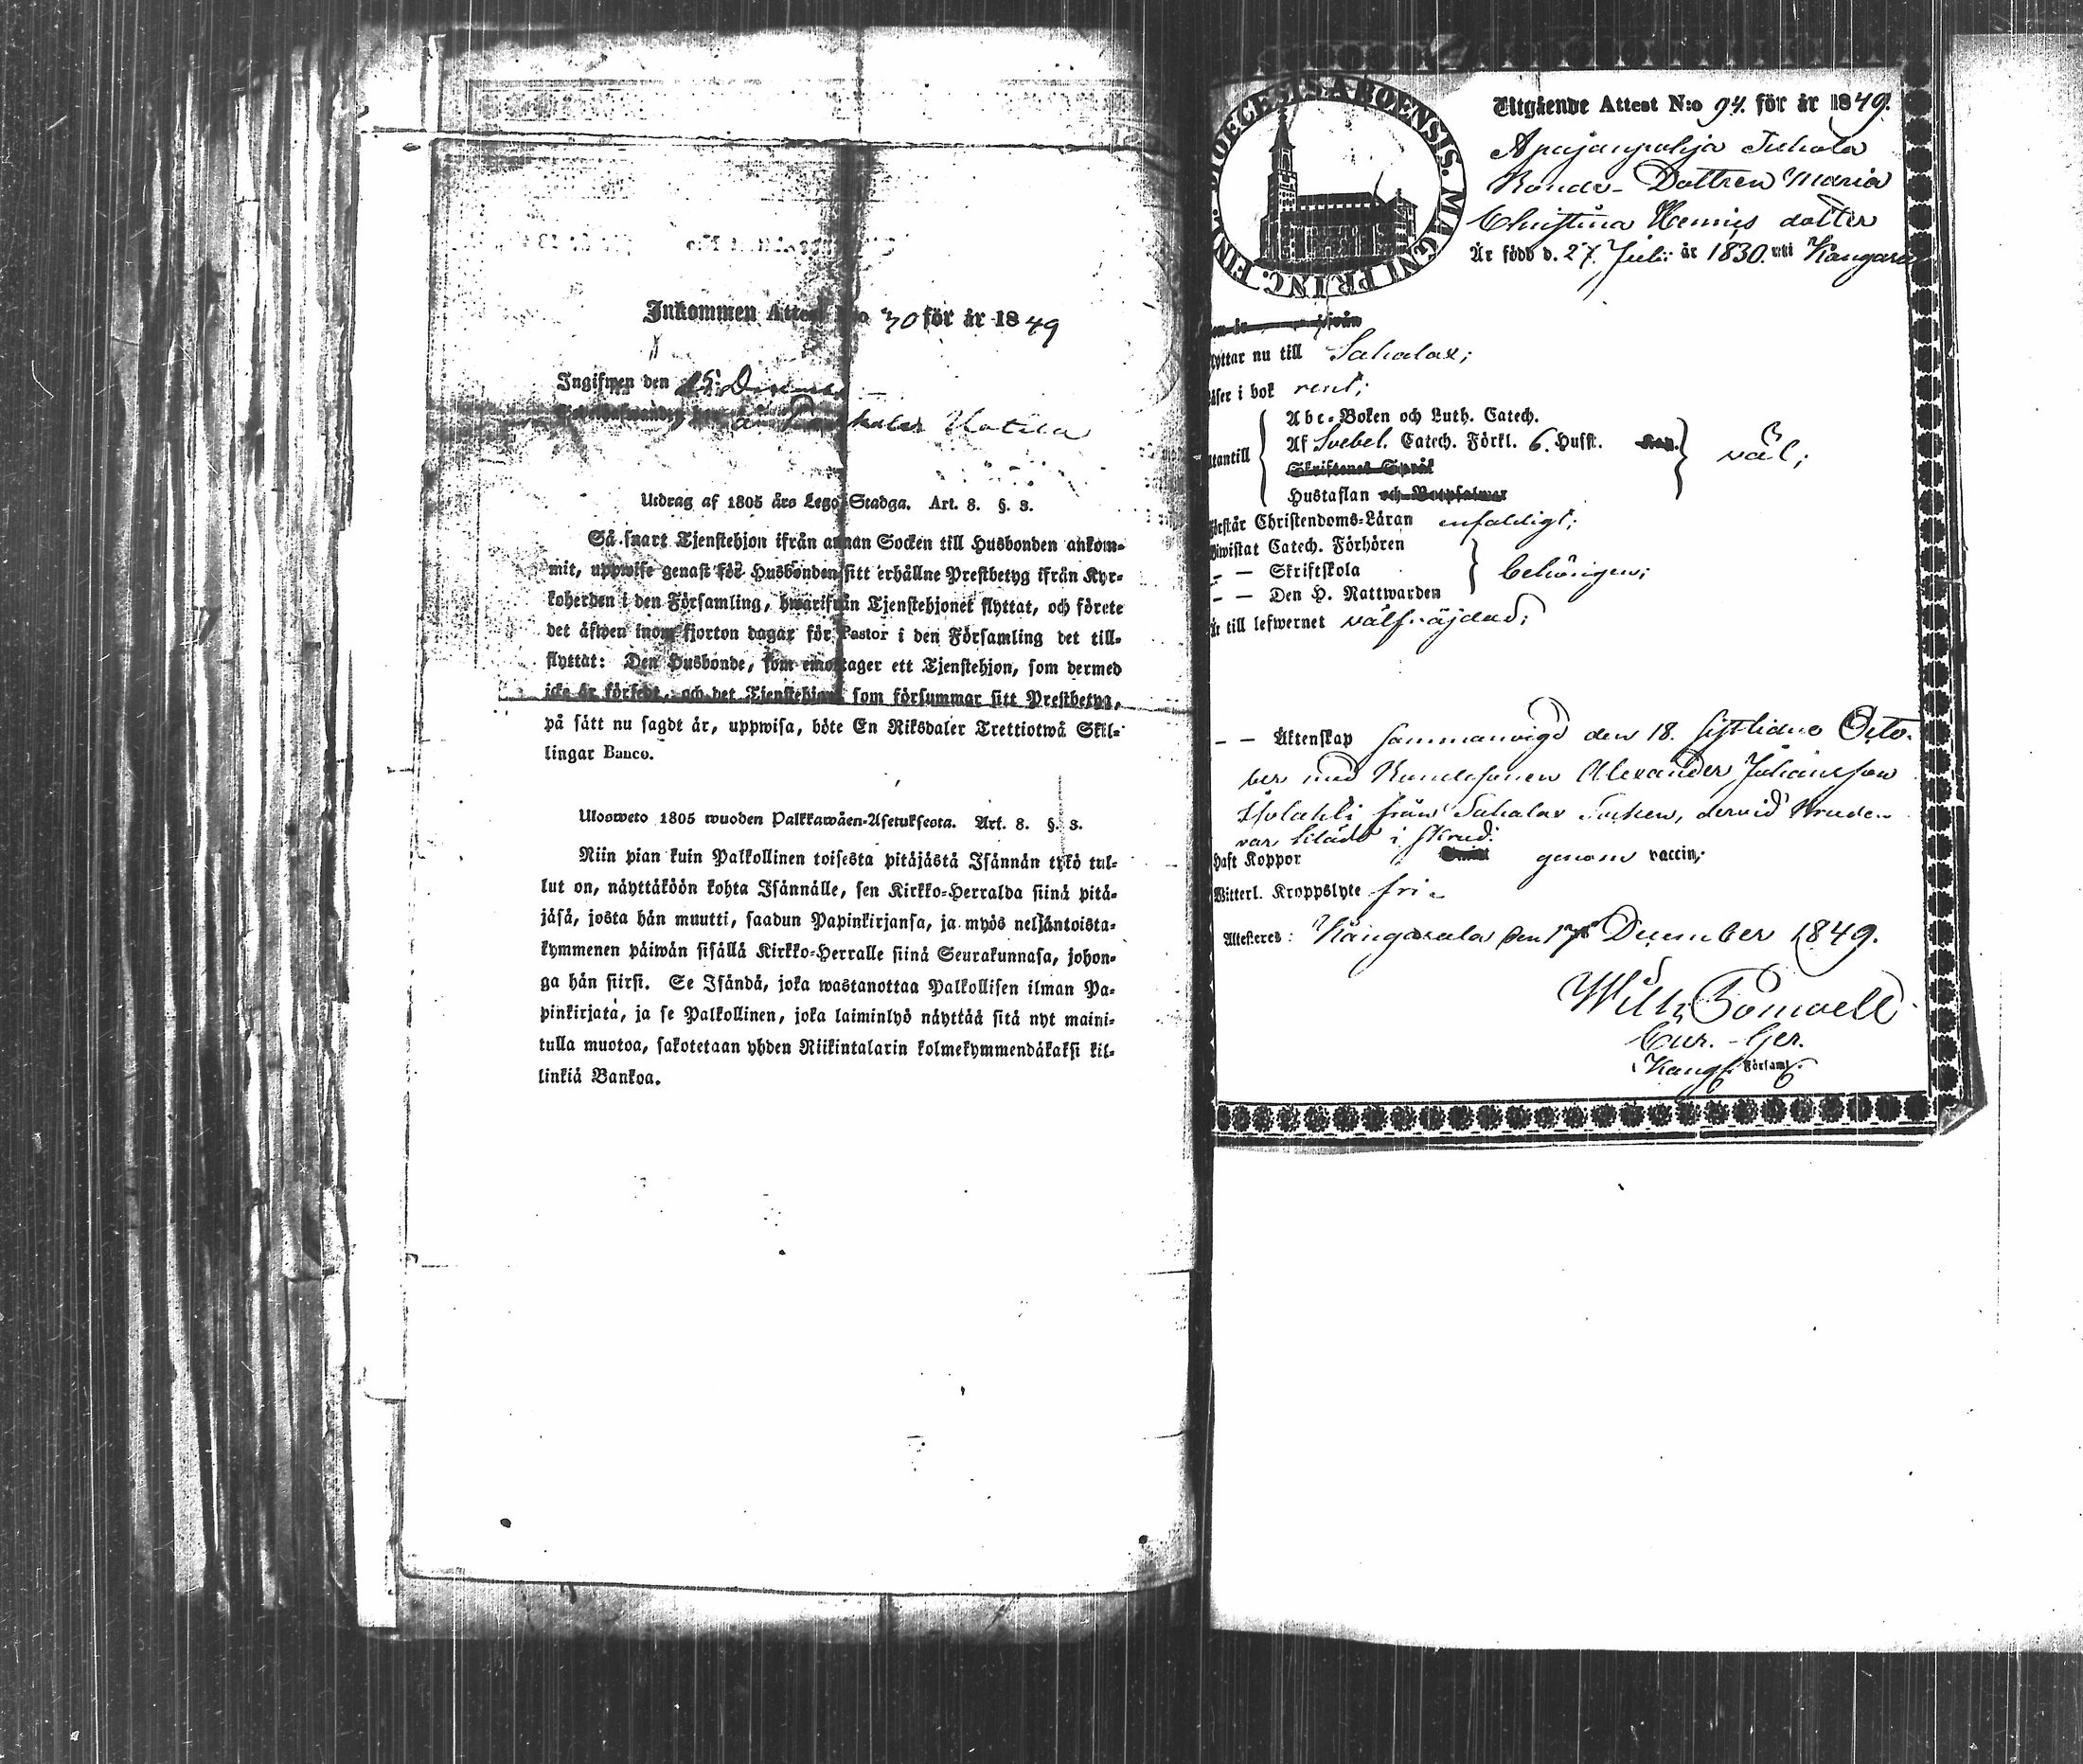 Inkommen Attest N:o 70 för år 1849
Ingifwen den 15 December
Utdrag af 1805 års Lego-Stadga. Art. 8. §. 3.
Så snart Tjenstehjon ifrån annan Socken till Husbonden ankom-
mit, uppwise genast för Husbonden sitt erhållne Prestbetyg ifrån Kyr-
koherden i den Församling, hwarifrån Tjenstehjonet flyttat, och förete
det äfwen inom fjorton dagar för Pastor i den Församling det till-
flyttat: Den Husbonde, som emottager ett Tjenstehjon, som dermed
icke är försedt, och det Tjenstehjon som försummar sitt Prestbetyg,
på sätt nu sagdt är, uppwisa, böte En Riksdaler Trettiotwå Skil-
lingar Banco.
Ulosweto 1805 wuoden Palkkawäen-Asetuksesta. Art. 8. §. 3.
Niin pian kuin Palkollinen toisesta pitäjästä Isännän tykö tul-
lut on, näyttäköön kohta Isännälle, sen Kirkko-Herralda siinä pitä-
jäsä, josta hän muutti, saadun Papinkirjansa, ja myös neljäntoista-
kymmenen päiwän sisällä Kirkko-Herralle siinä Seurakunnasa, johon-
ga hän siirsi. Se Isändä, joka wastanottaa Palkollisen ilman Pa-
pinkirjata, ja se Palkollinen, joka laiminlyö näyttää sitä nyt maini-
tulla muotoa, sakotetaan yhden Riikintalarin kolmekymmendäkaksi kil-
linkiä Bankoa.
DIOECESIS ABOENSIS. MAGNI PRINC. FINL.
Utgående Attest N:o 94. för år 1849.
Apajanpohja Juhola
Bonde-Dottren Maria
Christina Henricsdotter
Är född d. 27. Julii år 1830. uti Kangasa
flyttar nu till Sahalax;
läser i bok rent;
utantill
Abc-Boken och Luth. Catech.
Af Svebel. Catech. Förkl. 6. Hufst.
Skriftenes Språk
Hustaflan och Botpsalmer
väl;
Förstår Christendoms-Läran enfaldigt;
Biwistat Catech. Förhören
– – Skriftskola
– – Den H. Nattwarden
behörigen;
Är till lefwernet välfräjdad;
– – Äktenskap sammanvigd den 18. sistlidne Octo-
ber med Bondesonen Alexander Johansson
från Sahalax Socken, dervid Bruden
var klädd i skrud.
Haft Koppor genom vaccin;
Witterl. Kroppslyte fri.
Attesteres: Kangasala den 17 December 1849.
Wilh.
Cur. Ger.
Kang. Församl.